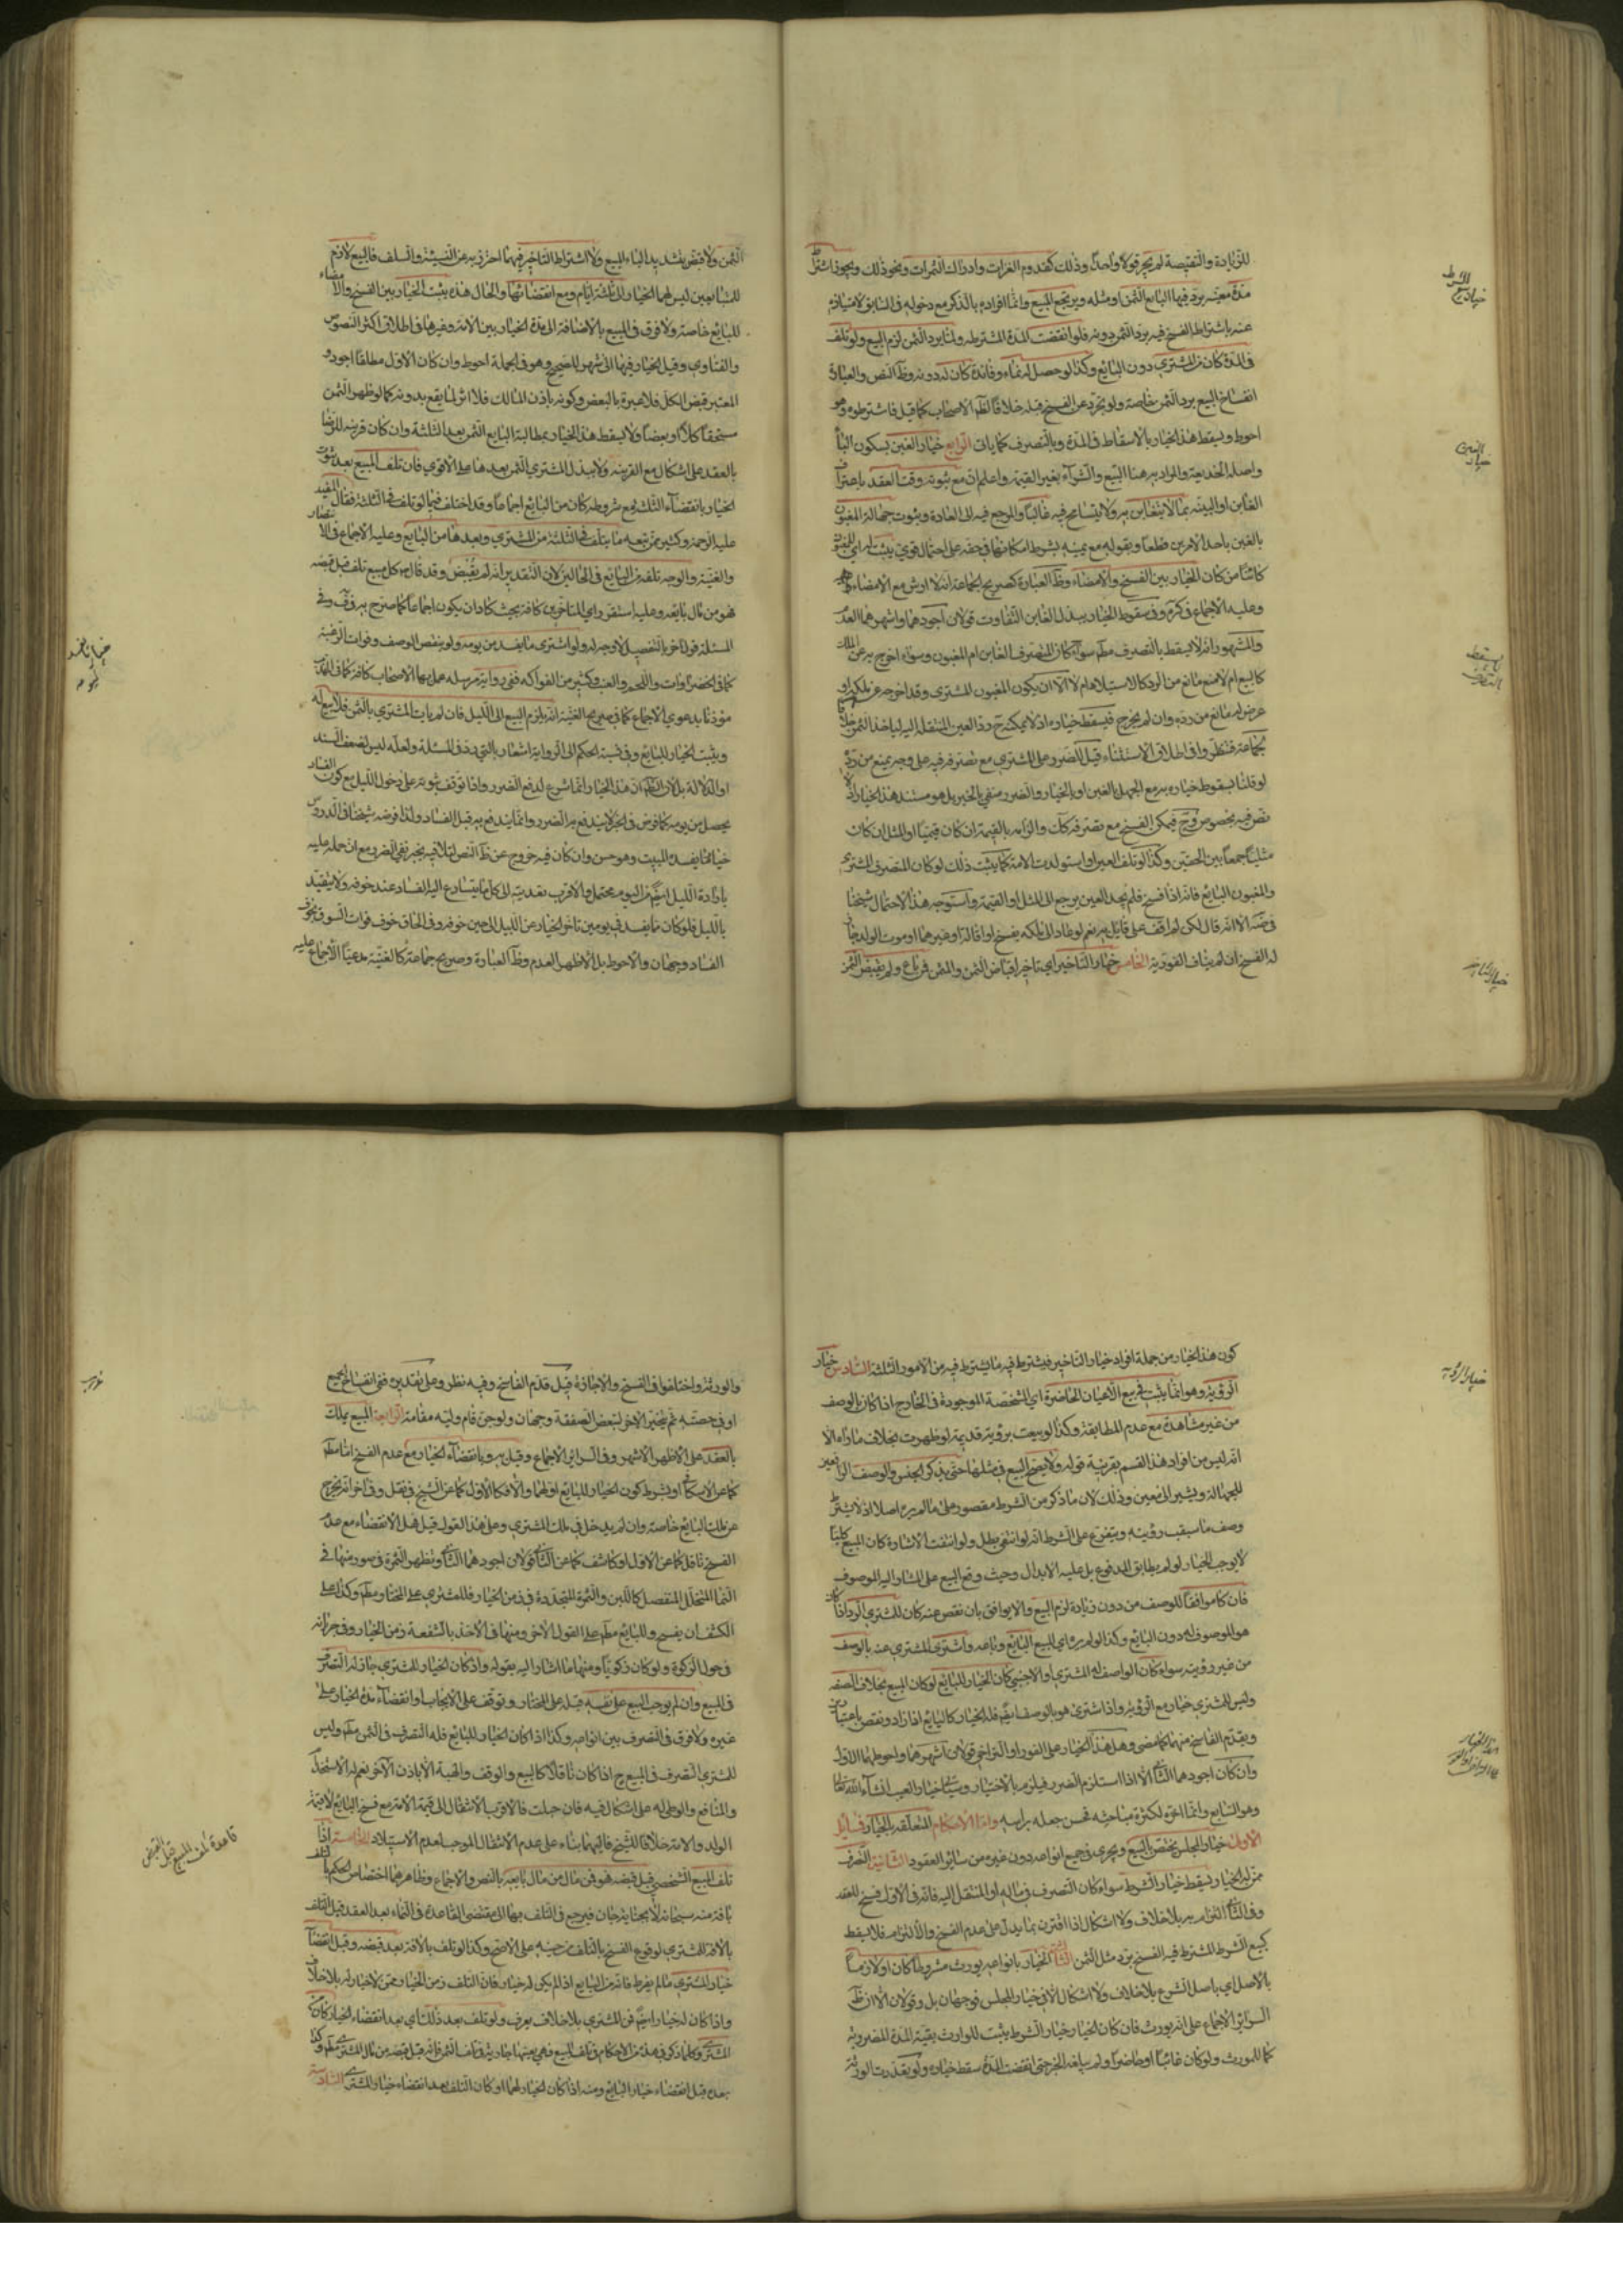 للزيادة والنقيصة لم يجز قولا واحدا وذلك كقدوم الغزات وادراك الثمرات ونحو ذلك ويجوز اشتراط
مدة معينة يرد فيها البايع الثمن او مثله ويرتجع المبيع وانما افراده بالذكر مع دخوله في السابق لامتيازه
عنه باشتراط الفسخ فيه برد الثمن دونه فلو انقضت المدة المشترطه ولما يرد الثمن لزم البيع ولو تلف
في المدة كان من المشتري دون البايع وكذا لو حصل له نماء وفائدة كان له دونه وظ النص والعبارة
انفساخ البيع برد الثمن خاصة ولو تجرد عن الفسخ قبله خلافا لظ الاصحاب كما قيل فاشترطوه وهو
احوط ويسقط هذا الخيار بالاسقاط في المدة وبالتصرف كما ياتي الرابع خيار الغبن بسكون الباء
واصله الخديعة والمراد به هنا البيع والشراء بغير القيمة واعلم ان مع ثبوته وقت العقد باعتراف
الغابن او البينة بما لا يتغابن به ولا يتسامح فيه غالبا والمرجع فيه الى العادة وبثبوت جهالة المغبون
بالغبن باحد الامرين قطعا وبقوله مع يمينه بشرط امكانها في حقه على احتمال قوي يثبت له اي للمغبون
كائنا من كان الخيار بين الفسخ والامضاء وظ العبارة كصريح الجماعة انه لا ارش مع الامضاء
وعليه الاجماع في كره وفي سقوط الخيار ببذل الغابن التفاوت قولان اجودهما واشهرهما العدم
والمشهور انه لا يسقط بالتصرف مطم سواء كان المتصرف الغابن ام المغبون وسواء اخرج به عن الملك
كالبيع ام لا منع مانع من الرد كالاستيلاد ام لا الا ان يكون المغبون المشتري وقد اخرجه عن ملكه او
عرض له مانع من رده وان لم يخرج فيسقط خياره اذ لا يمكنه ح رد العين المنتقلة اليه لياخذ الثمن خلافا
لجماعة فنظروا في اطلاق الاستثناء قيل للضرر على المشتري مع تصرفه فيه على وجه يمنع من رده
لو قلنا بسقوط خياره به مع الجهل بالغبن او بالخيار والضرر منفي بالخبر بل هو مستند هذا الخيار اذ لا
نص فيه بخصوصه وح فيمكن الفسخ مع تصرفه كك والزامه بالقيمة ان كان قيميا او المثل ان كان
مثليا جمعا بين الحقين وكذا لو تلف العين او استولدت الامة كما يثبت ذلك لو كان المتصرف المشتري
والمغبون البايع فانه اذا فسخ فلم يجد العين يرجع الى المثل او القيمة واستوجه هذا الاحتمال شيخنا
في ضه الا انه قال لكن لم اقف على قائل به نعم لو عاد الى ملكه بفسخ او اقالة او غيرهما او موت الولد جاز
له الفسخ ان لم يناف الفورية الخامس خيار التاخير اي تاخير اقباض الثمن والمثمن فمن باع ولم يقبض الثمن
خيار الشرط
خيار الغبن
خيار التاخير
الثمن ولا قبض بتشديد الباء المبيع ولا اشتراط التاخير فيهما احترز به عن النسيئة والسلف فالبيع لازم
للمتبايعين ليس لهما الخيار الى ثلثة ايام ومع انقضائها والحال هذه يثبت الخيار بين الفسخ والامضاء
للبايع خاصة ولا فرق في المبيع بالاضافة الى مدة الخيار بين الامة وغيرها في اطلاق اكثر النصوص
والفتاوي وقيل الخيار فيها الى شهر للصحيح وهو في الجملة احوط وان كان الاول مطلقا اجود و
المعتبر قبض الكل فلا عبرة بالبعض وكونه باذن المالك فلا اثر لما يقع بدونه كما لو ظهر الثمن
مستحقا كلا او بعضا ولا يسقط هذا الخيار بمطالبة البايع الثمن بعد الثلثة وان كان قرينة للرضا
بالعقد على اشكال مع القرينة ولا ببذل المشتري الثمن بعدها على الاقوي فان تلف المبيع بعد ثبوت
الخيار بانقضاء الثلثة مع شروطه كان من البايع اجماعا وقد اختلف فيما لو تلف في الثلثة فقال المفيد
عليه الرحمة وكثير ممن تبعه ما يتلف في الثلثة من المشتري وبعدها من البايع وعليه الاجماع في الانتصار
والغنية والوجه تلفه من البايع في الحالين لان التقدير انه لم يقبض وقد قال ص كل مبيع تلف قبل قبضه
فهو من مال بايعه وعليه استقر راي المتاخرين كافة بحيث كاد ان يكون اجماعا كما صرح به في ف وفي
المسئلة قول اخر بالتفصيل لا وجه له ولو اشترى ما يفسد من يومه ولو بنقص الوصف وفوات الرغبة
كما في الخضراوات واللحم والعنب وكثير من الفواكه ففي رواية مرسله عمل بها الاصحاب كافة كما في المهذب
مؤذنا بدعوي الاجماع كما في صريح الغنية انه يلزم البيع الى الليل فان لم يات المشتري بالثمن فلا بيع له
ويثبت الخيار للبايع وفي نسبة الحكم الى الرواية اشعار بالتردد في المسئلة ولعله ليس لضعف السند
او الدلالة بل لان الظ ان هذا الخيار انما شرع لدفع الضرر واذا توقف ثبوته على دخول الليل مع كون الفساد
يحصل من يومه كما فرض في الخبر لا يندفع به الضرر وانما يندفع به قبل الفساد ولذا فرضه شيخنا في الدروس
خيار ما يفسده المبيت وهو حسن وان كان فيه خروج عن ظ النص لتلافيه بخبر نفي الضرر مع ان حمله عليه
بارادة الليل ايضا من اليوم محتمل والاقرب تعديته الى كل ما يتسارع اليه الفساد عند خوفه ولا يتقيد
بالليل فلو كان ما يفسد في يومين تاخر الخيار عن الليل الى حين خوفه وفي الحاق خوف فوات السوق بخوف
الفساد وجهان والاحوط بل الاظهر العدم وظ العبارة وصريح جماعة كالغنية مدعيا الاجماع عليه
كون هذا الخيار من جملة افراد خيار التاخير فيشترط فيه ما يشترط فيه من الامور الثلثة السادس خيار
الرؤية وهو انما يثبت في بيع الاعيان الحاضرة اي المشخصة الموجودة في الخارج اذا كان بالوصف
من غير مشاهدة مع عدم المطابقة وكذا لو بيعت برؤية قديمة لو ظهرت بخلاف ما راه الا
انه ليس من افراد هذا القسم بقرينة قوله ولا يصح البيع في مثلها حتى يذكر الجنس والوصف الرافعين
للجهالة ويشير الى معين وذلك لان ما ذكر من الشرط مقصور على ما لم يره اصلا اذ لا يشترط
وصف ما سبقت رؤيته ويتفرع على الشرط انه لو انتفى بطل ولو انتفت الاشارة كان المبيع كليا
لا يوجب الخيار لو لم يطابق المدفوع بل عليه الابدال وحيث وقع البيع على المشار اليه الموصوف
فان كان موافقا للوصف من دون زيادة لزم البيع والا يوافق بان نقص عنه كان للمشتري الرد اذا كان
هو الموصوف له دون البايع وكذا لو لم ير اي المبيع البايع وباعه واشترى المشتري عنه بالوصف
من غير رؤيته سواء كان الواصف له المشتري او الاجنبي كان الخيار للبايع لو كان المبيع بخلاف الصفة
وليس للمشتري خيار مع الرؤية واذا اشترى هو بالوصف ايضا فله الخيار كالبايع اذا زاد ونقص باعتبارين
ويقدم الفاسخ منهما كما مضى وهل هذا الخيار على الفور او التراخي قولان اشهرهما واحوطهما الاول
وان كان اجودهما الثاني الا اذا استلزم الضرر فيلزم بالاختيار وسياتي خيار العيب انشاء الله تعالى
وهو السابع وانما اخره لكثرة مباحثه فحسن جعله براسه واما الاحكام المتعلقة بالخيار فمسائل
الاولى خيار المجلس يختص بالبيع ويجري في جميع انواعه دون غيره من سائر العقود الثانية التصرف
ممن له الخيار يسقط خيار الشرط سواء كان التصرف في ماله او المنتقل اليه فانه في الاول فسخ للعقد
وفي الثاني التزام به بلا خلاف ولا اشكال اذا اقترن بما يدل على عدم الفسخ والالتزام فلا يسقط
كبيع الشرط المشترط فيه الفسخ برد مثل الثمن الثالثة الخيار بانواعه يورث مشروطا كان او لازما
بالاصل اي باصل الشرع بلا خلاف ولا اشكال الا في خيار المجلس فوجهان بل وقولان الا ان ظ
السرائر الاجماع على انه يورث فان كان الخيار خيار الشرط يثبت للوارث بقية المدة المضروبة
كما للمورث ولو كان غائبا او حاضرا ولم يبلغه الخبر حتى انقضت المدة سقط خياره ولو تعددت الورثة
خيار الرؤية
والورثة واختلفوا في الفسخ والاجازة قيل قدم الفاسخ وفيه نظر وعلى تقديره ففي انفساخ الجميع
او في حصته ثم يتخير الاخر لتبعض الصفقة وجهان ولو جن قام وليه مقامه الرابعة المبيع يملك
بالعقد على الاظهر الاشهر وفي السرائر الاجماع وقيل به وبانقضاء الخيار مع عدم الفسخ اما مطم
كما عن الاسكافي او بشرط كون الخيار للبايع او لهما والا فكالاول كما عن الشيخ في نقل وفي اخر انه يخرج
عن ملك البايع خاصة وان لم يدخل في ملك المشتري وعلى هذا القول قيل هل الانقضاء مع عدم
الفسخ ناقل كما عن الاول او كاشف كما عن الثاني قولان اجودهما الثاني وتظهر الثمرة في صور منها في
النماء المتخلل المنفصل كاللبن والثمرة المتجددة في زمن الخيار فللمشتري على المختار مطم وكذا على
الكشف ان يفسخ وللبايع مطم على القول الاخر ومنها في الاخذ بالشفعة زمن الخيار وفي جريانه
في حول الزكوة ولو كان زكويا ومنها ما اشار اليه بقوله واذا كان الخيار للمشتري جاز له التصرف
في المبيع وان لم يوجب البيع على نفسه قبله على المختار وتوقف على الايجاب او انقضاء مدة الخيار على
غيره ولا فرق في التصرف بين انواعه وكذا اذا كان الخيار للبايع فله التصرف في الثمن مطم وليس
للمشتري التصرف في المبيع ح اذا كان ناقلا كالبيع والوقف والهبة الا باذن الاخر نعم له الاستخدام
والمنافع والوطي له على اشكال فيه فان حبلت فالاقرب الانتقال الى قيمة الام مع فسخ البايع لا قيمة
الولد والام خلافا للشيخ فاليهما بناء على عدم الانتقال الموجب لعدم الاستيلاد الخامسة اذا
تلف المبيع الشخصي قبل قبضه فهو من مال من مال بايعه بالنص والاجماع وظاهرهما اختصاص الحكم بالتلف
بافة منه سبحانه لا بجناية جان فيرجع في التلف بها الى مقتضى القاعدة في النماء بعد العقد قبل التلف
بالافة للمشتري لوقوع الفسخ بالتلف من حينه على الاصح وكذا لو تلف بالافة بعد قبضه وقبل انقضاء
خيار المشتري ما لم يفرط فانه من البايع اذا لم يكن له خيار فان التلف زمن الخيار ممن لا خيار له بلا خلاف
واذا كان له خيار ايضا فمن المشتري بلا خلاف يعرف ولو تلف بعد ذلك اي بعد انقضاء الخيار كان من
المشتري وكلما ذكر في هذه من الاحكام في تلف المبيع فهي بعينها جارية في تلف الثمن فانه قبل قبضه من مال المشتري مطم وكذا
بعده قبل انقضاء خيار البايع ومنه اذا كان الخيار لهما او كان التلف بعد انقضاء خيار المشتري السادسة
قاعدة تلف المبيع قبل القبض